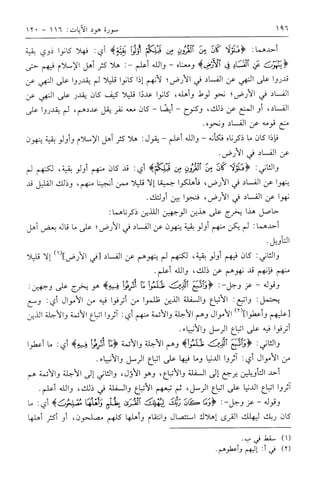 ١٩٦
سورة هود الآيات: ١١٦ - ١٢٠
أحدهما: ﴿فَلَوْلَا كَانَ مِنَ الْقُرُونِ مِن قَبْلِكُمْ أُولُو بَقِيَّةٍ﴾ أي: فهلا كانوا ذوي بقية
﴿يَنْهَوْنَ عَنِ الْفَسَادِ فِي الْأَرْضِ﴾ ومعناه - والله أعلم -: هلا كثر أهل الإسلام فيهم حتى
قدروا على النهي عن الفساد في الأرض؛ لأنهم إذا كانوا قليلا لم يقدروا على النهي عن
الفساد في الأرض؛ نحو لوط وأهله، كانوا عددًا قليلا كيف كان يقدر على النهي عن
الفساد، أو المنع عن ذلك، وكنوح - أيضًا - كان معه نفر يقل عددهم، لم يقدروا على
منع قومه عن الفساد ونحوه.
فإذا كان ما ذكرناه فكأنه - والله أعلم - يقول: هلا كثر أهل الإسلام وأولو بقية ينهون
عن الفساد في الأرض.
والثاني: ﴿فَلَوْلَا كَانَ مِنَ الْقُرُونِ مِن قَبْلِكُمْ﴾ أي: قد كان منهم أولو بقية، لكنهم لم
ينهوا عن الفساد في الأرض، فأهلكوا جميعًا إلا قليلا ممن أنجينا منهم، وذلك القليل قد
نهوا عن الفساد في الأرض، فنجوا بين أولئك.
حاصل هذا يخرج على هذين الوجهين اللذين ذكرناهما:
أحدهما: لم يكن منهم أولو بقية ينهون عن الفساد في الأرض؛ على ما قاله بعض أهل
التأويل.
والثاني: كان فيهم أولو بقية، لكنهم لم ينهوهم عن الفساد [في الأرض](١) إلا قليلا
منهم فإنهم قد نهوهم عن ذلك، والله أعلم.
وقوله - عز وجل-: ﴿وَاتَّبَعَ الَّذِينَ ظَلَمُوا مَا أُتْرِفُوا فِيهِ﴾ هو يخرج على وجهين:
يحتمل: واتبع: الأتباع والسفلة الذين ظلموا من أترفوا فيه من الأموال أي: وسع
[عليهم وأعطوا](٢) الأموال وهم الأجلة والأئمة منهم أي: آثروا اتباع الأئمة والأجلة الذين
أترفوا فيه على اتباع الرسل والأنبياء.
والثاني: ﴿وَاتَّبَعَ الَّذِينَ ظَلَمُوا﴾ وهم الأجلة والأئمة ﴿مَا أُتْرِفُوا فِيهِ﴾ أي: ما أعطوا
من الأموال أي: آثروا الدنيا وما فيها على اتباع الرسل والأنبياء.
أحد التأويلين يرجع إلى السفلة والأتباع، وهو الأول، والثاني إلى الأجلة والأئمة هم
آثروا اتباع الدنيا على اتباع الرسل، ثم تبعهم الأتباع والسفلة في ذلك، والله أعلم.
وقوله - عز وجل-: ﴿وَمَا كَانَ رَبُّكَ لِيُهْلِكَ الْقُرَى بِظُلْمٍ وَأَهْلُهَا مُصْلِحُونَ﴾ أي: ما
كان ربك ليهلك القرى إهلاك استئصال وانتقام وأهلها كلهم مصلحون، أو أكثر أهلها
(١) سقط في ب.
(٢) في أ: إليهم وأعطوهم.